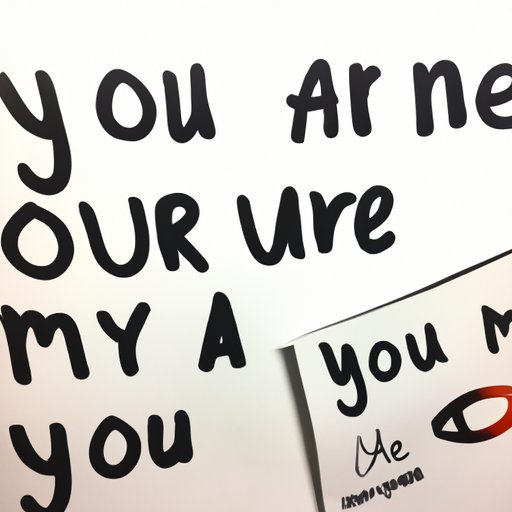 you Ar ne
OUR Ure
mY A
you
you m
Me